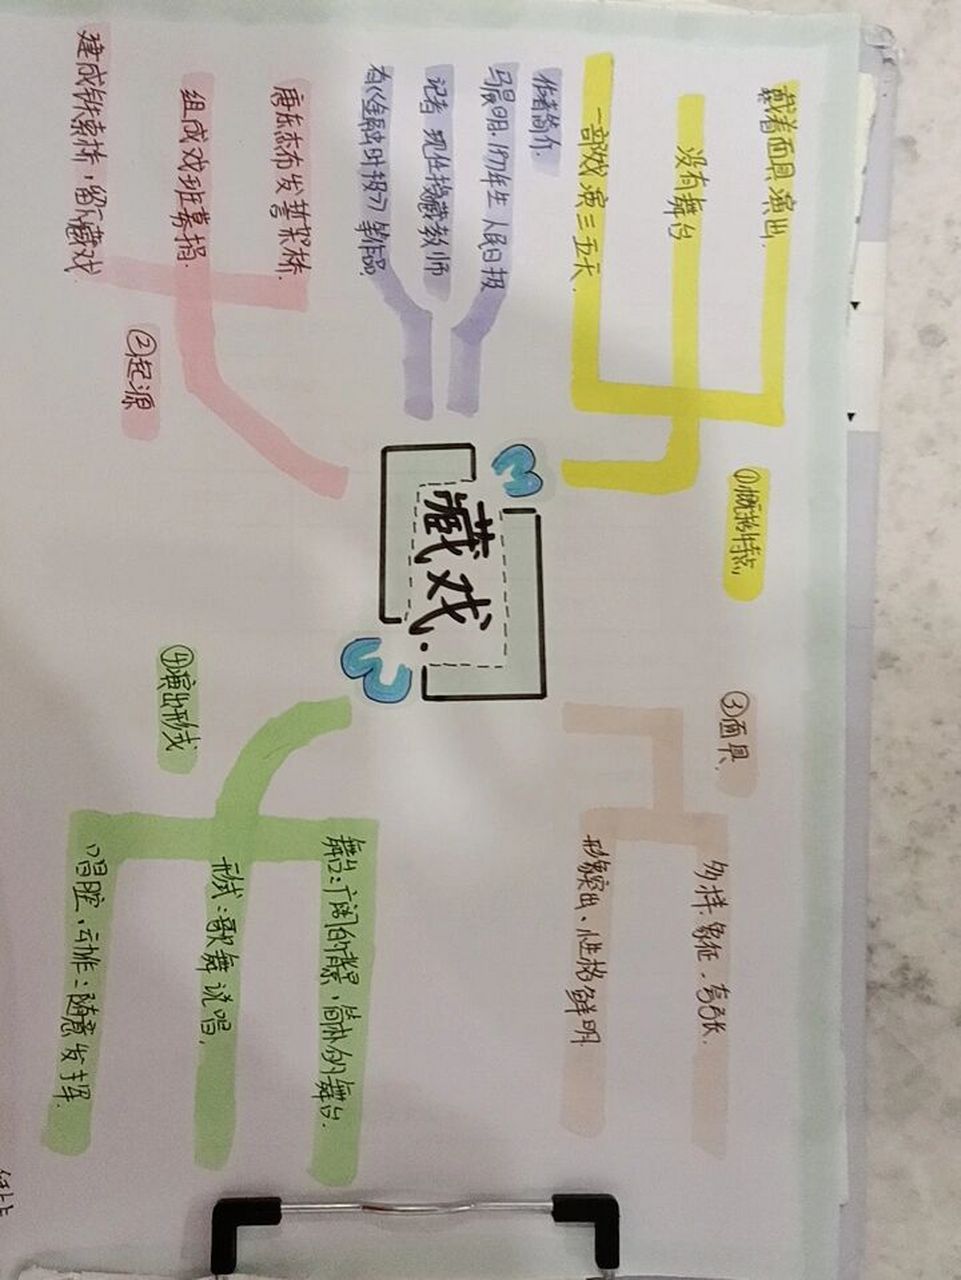 藏戏.
作者简介.
马晨明.1971年生 人民日报
记者 现任援藏教师
有《金融时报》等作品.
①概括特点
戴着面具演出.
没有舞台
一部戏演三五天.
②起源
唐东杰布发誓架桥.
组成戏班募捐.
建成铁索桥,留下藏戏
③面具.
多样.象征.夸张.
形象突出、性格鲜明.
④演出形式
舞台:广阔的背景,简朴的舞台.
形式:歌舞说唱.
唱腔、动作:随意发挥.